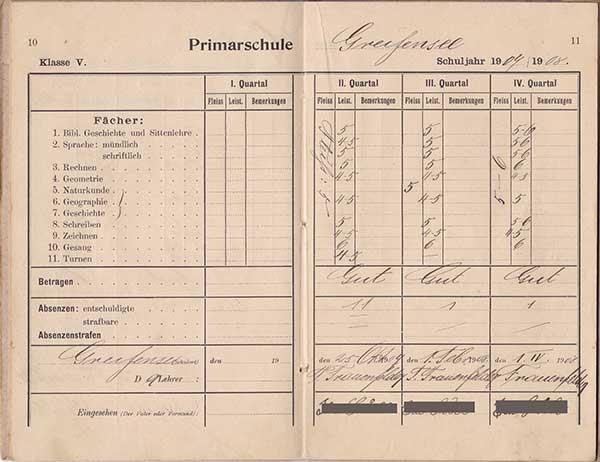 10 Primarschule Greifensee 11
Klasse V. Schuljahr 1907/1908.
I. Quartal II. Quartal III. Quartal IV. Quartal
Fleiss Leist. Bemerkungen Fleiss Leist. Bemerkungen Fleiss Leist. Bemerkungen Fleiss Leist. Bemerkungen
Fächer:
1. Bibl. Geschichte und Sittenlehre . 5 5 5-6
2. Sprache: mündlich 4-5 5 5-6
schriftlich 5 5 5-6
3. Rechnen 5 5 6
4. Geometrie 4-5 4-5 4-5
5. Naturkunde 5
6. Geographie 4-5 4-5 4-5
7. Geschichte
8. Schreiben 5 5 5-6
9. Zeichnen 4-5 4-5 4-5
10. Gesang 6 6 6
11. Turnen 4-5 — —
Betragen Gut Gut Gut
Absenzen: entschuldigte 11 1 1
strafbare — — —
Absenzenstrafen
Greifensee den 19 den 25. Okt. 1907 den 1. Feb. 1908. den 1. IV. 1908
D Lehrer : Frauenfelder Frauenfelder Frauenfelder
Eingesehen (Der Vater oder Vormund):